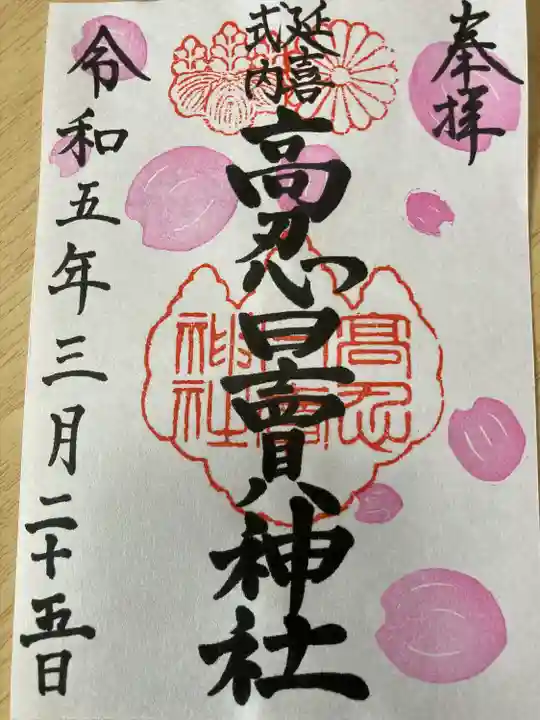 奉拝
延喜
式内
高忍日賣神社
高忍
日賣
神社
令和五年三月二十五日